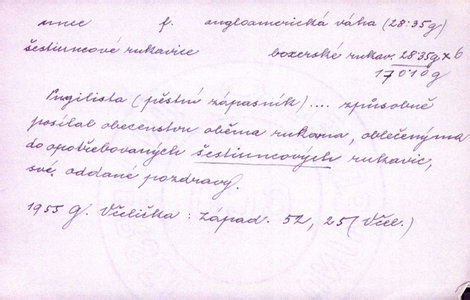 unce f. angloamerická váha (28·35g)
šestiuncové rukavice boxerské rukav. 28·35g x 6
170·10g
Pugilista (pěstní zápasník) .... způsobně
posílal obecenstvu oběma rukama, oblečenýma
do opotřebovaných šestiuncových rukavic,
své oddané pozdravy.
1955 G. Včelička : Západ. 52, 25 (Včel.)